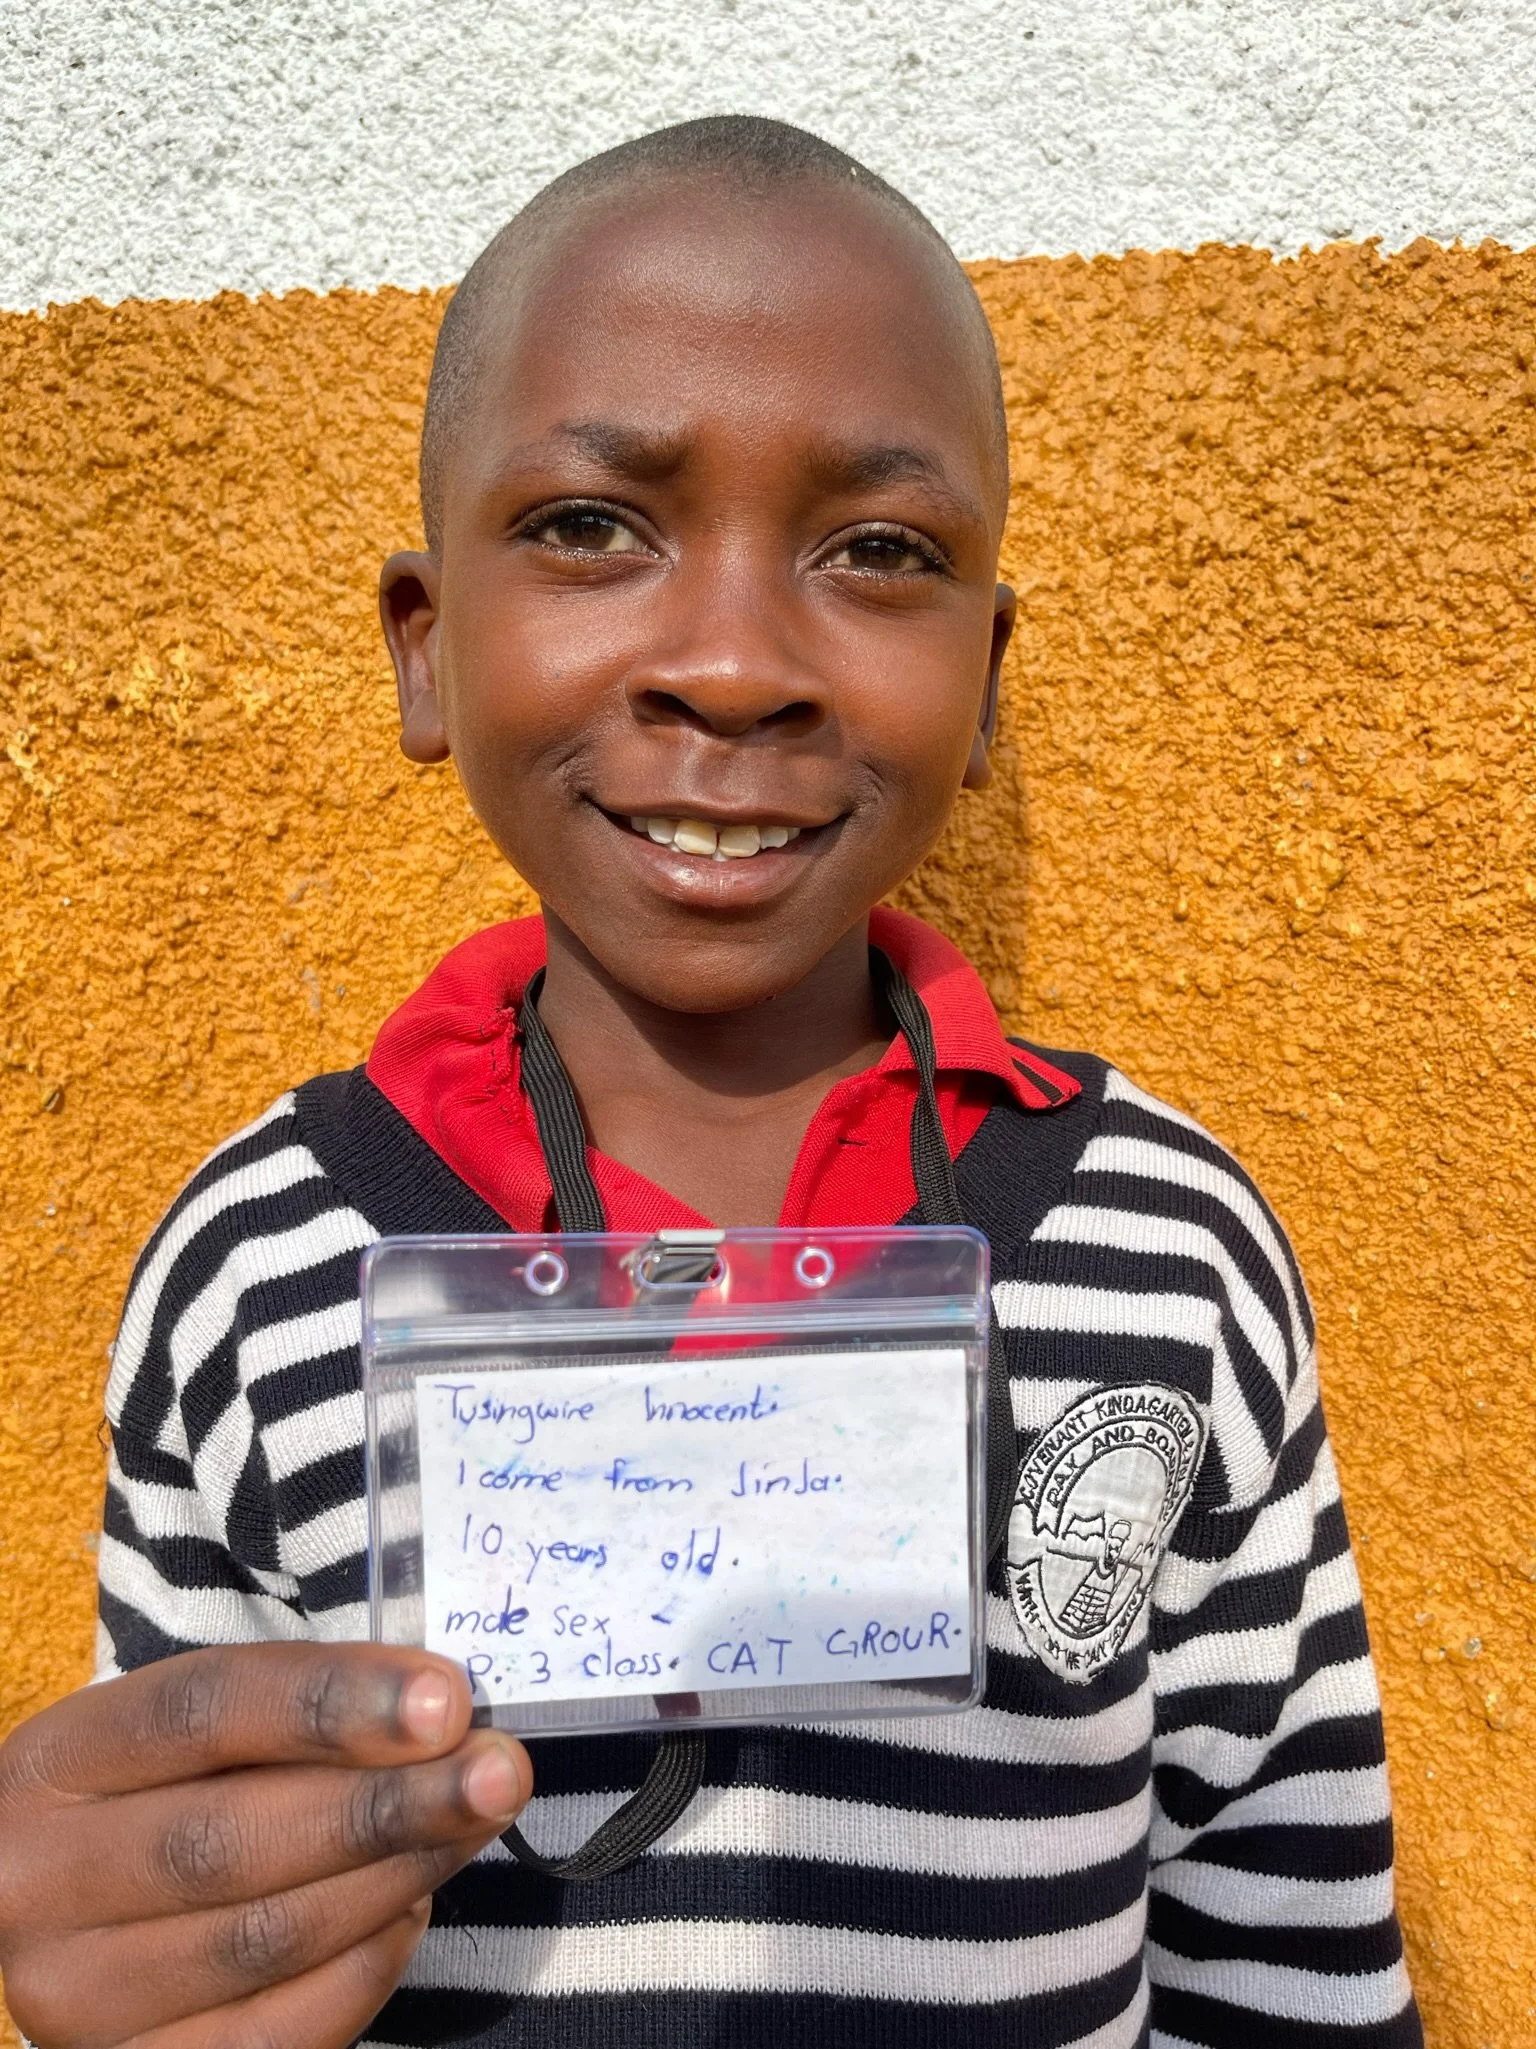 Tusingwire Innocent.
I come from Jinja.
10 years old.
male sex -
P. 3 class. CAT GROUP.
COVENANT KINDAGARTEN
DAY AND BOARDING